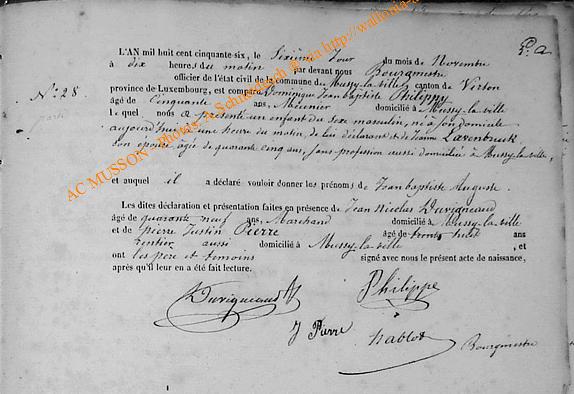 L'AN mil huit cent cinquante-six, le Sixième Jour du mois de Novembre
N° 28 à dix heures du matin par devant nous Bourgmestre
officier de l'état civil de la commune de Mussy-la-ville canton de Virton
province de Luxembourg, est comparu Dominique Jean baptiste Philippe
âgé de Cinquante ans, Meunier domicilié à Mussy-la-ville
Lequel nous a présenté un enfant du sexe masculin, né à son domicile
aujourd'hui à une heure du matin, de lui déclarant et de Jeanne
son épouse âgée de quarante cinq ans, sans profession aussi domiciliée à Mussy-la-ville,
et auquel il a déclaré vouloir donner les prénoms de Jean baptiste Auguste.
Les dites déclaration et présentation faites en présence de Jean Nicolas Duvigneaud
âgé de quarante neuf ans, Marchand domicilié à Mussy-la-ville
et de Pierre Justin Pierre âgé de trente huit ans
rentier aussi domicilié à Mussy-la-ville, et
ont les père et témoins signé avec nous le présent acte de naissance,
après qu'il leur en a été fait lecture.
Duvigneaud Philippe
J Pierre Hablot Bourgmestre